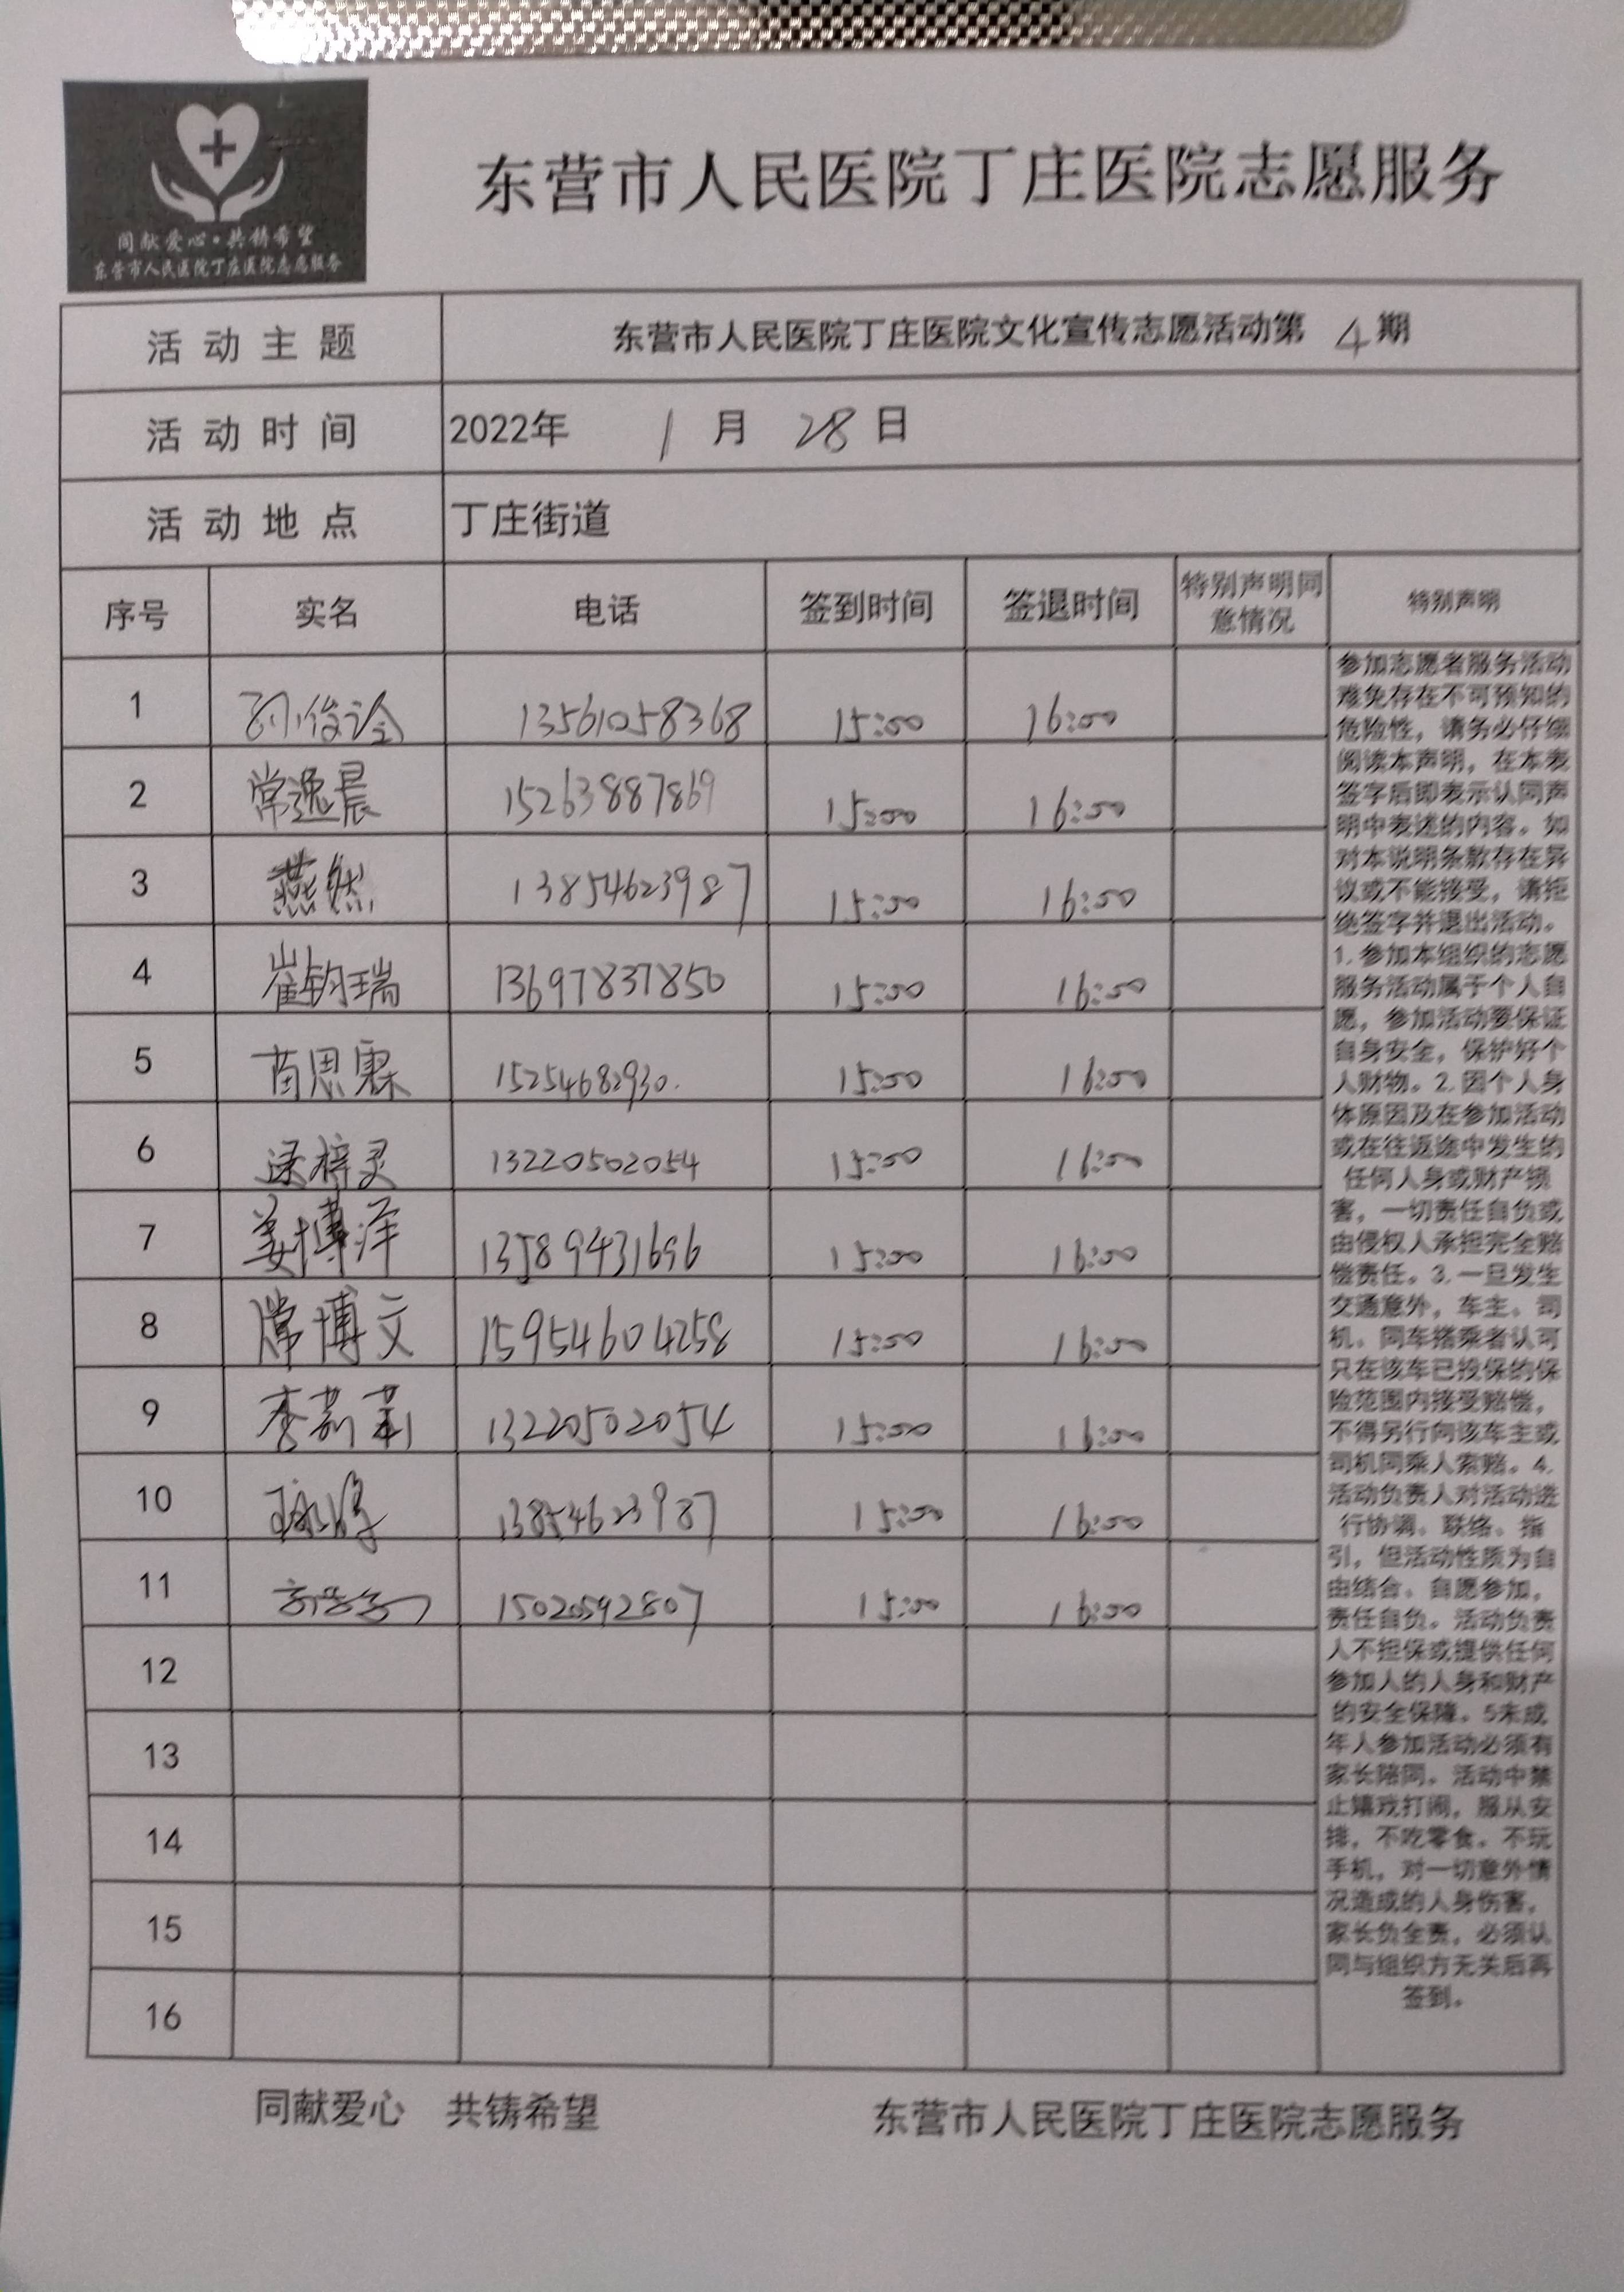 同献爱心·共铸希望
东营市人民医院丁庄医院志愿服务
东营市人民医院丁庄医院志愿服务
活动主题 东营市人民医院丁庄医院文化宣传志愿活动第 4 期
活动时间 2022年 1 月 28 日
活动地点 丁庄街道
序号 实名 电话 签到时间 签退时间 特别声明同意情况 特别声明
1 13561058368 15:00 16:00
2 常逸晨 15263887869 15:00 16:00
3 燕然 13854623987 15:00 16:00
4 崔钧瑞 13697837850 15:00 16:00
5 苗思霖 15254682930. 15:00 16:00
6 13220502054 15:00 16:00
7 姜博洋 13589431696 15:00 16:00
8 常博文 15954604258 15:00 16:00
9 李莉莉 13220502054 15:00 16:00
10 13854623987 15:00 16:00
11 15020592807 15:00 16:00
12
13
14
15
16
参加志愿者服务活动
难免存在不可预知的
危险性，请务必仔细
阅读本声明，在本表
签字后即表示认同声
明中表述的内容。如
对本说明条款存在异
议或不能接受，请拒
绝签字并退出活动。
1.参加本组织的志愿
服务活动属于个人自
愿，参加活动要保证
自身安全，保护好个
人财物。2.因个人身
体原因及在参加活动
或在往返途中发生的
任何人身或财产损
害，一切责任自负或
由侵权人承担完全赔
偿责任。3.一旦发生
交通意外，车主、司
机、同车搭乘者认可
只在该车已投保的保
险范围内接受赔偿，
不得另行向该车主或
司机同乘人索赔。4.
活动负责人对活动进
行协调、联络、指
引，但活动性质为自
由结合、自愿参加，
责任自负。活动负责
人不担保或提供任何
参加人的人身和财产
的安全保障。5未成
年人参加活动必须有
家长陪同。活动中禁
止嬉戏打闹，服从安
排，不吃零食。不玩
手机，对一切意外情
况造成的人身伤害，
家长负全责，必须认
同与组织方无关后再
签到。
同献爱心 共铸希望 东营市人民医院丁庄医院志愿服务